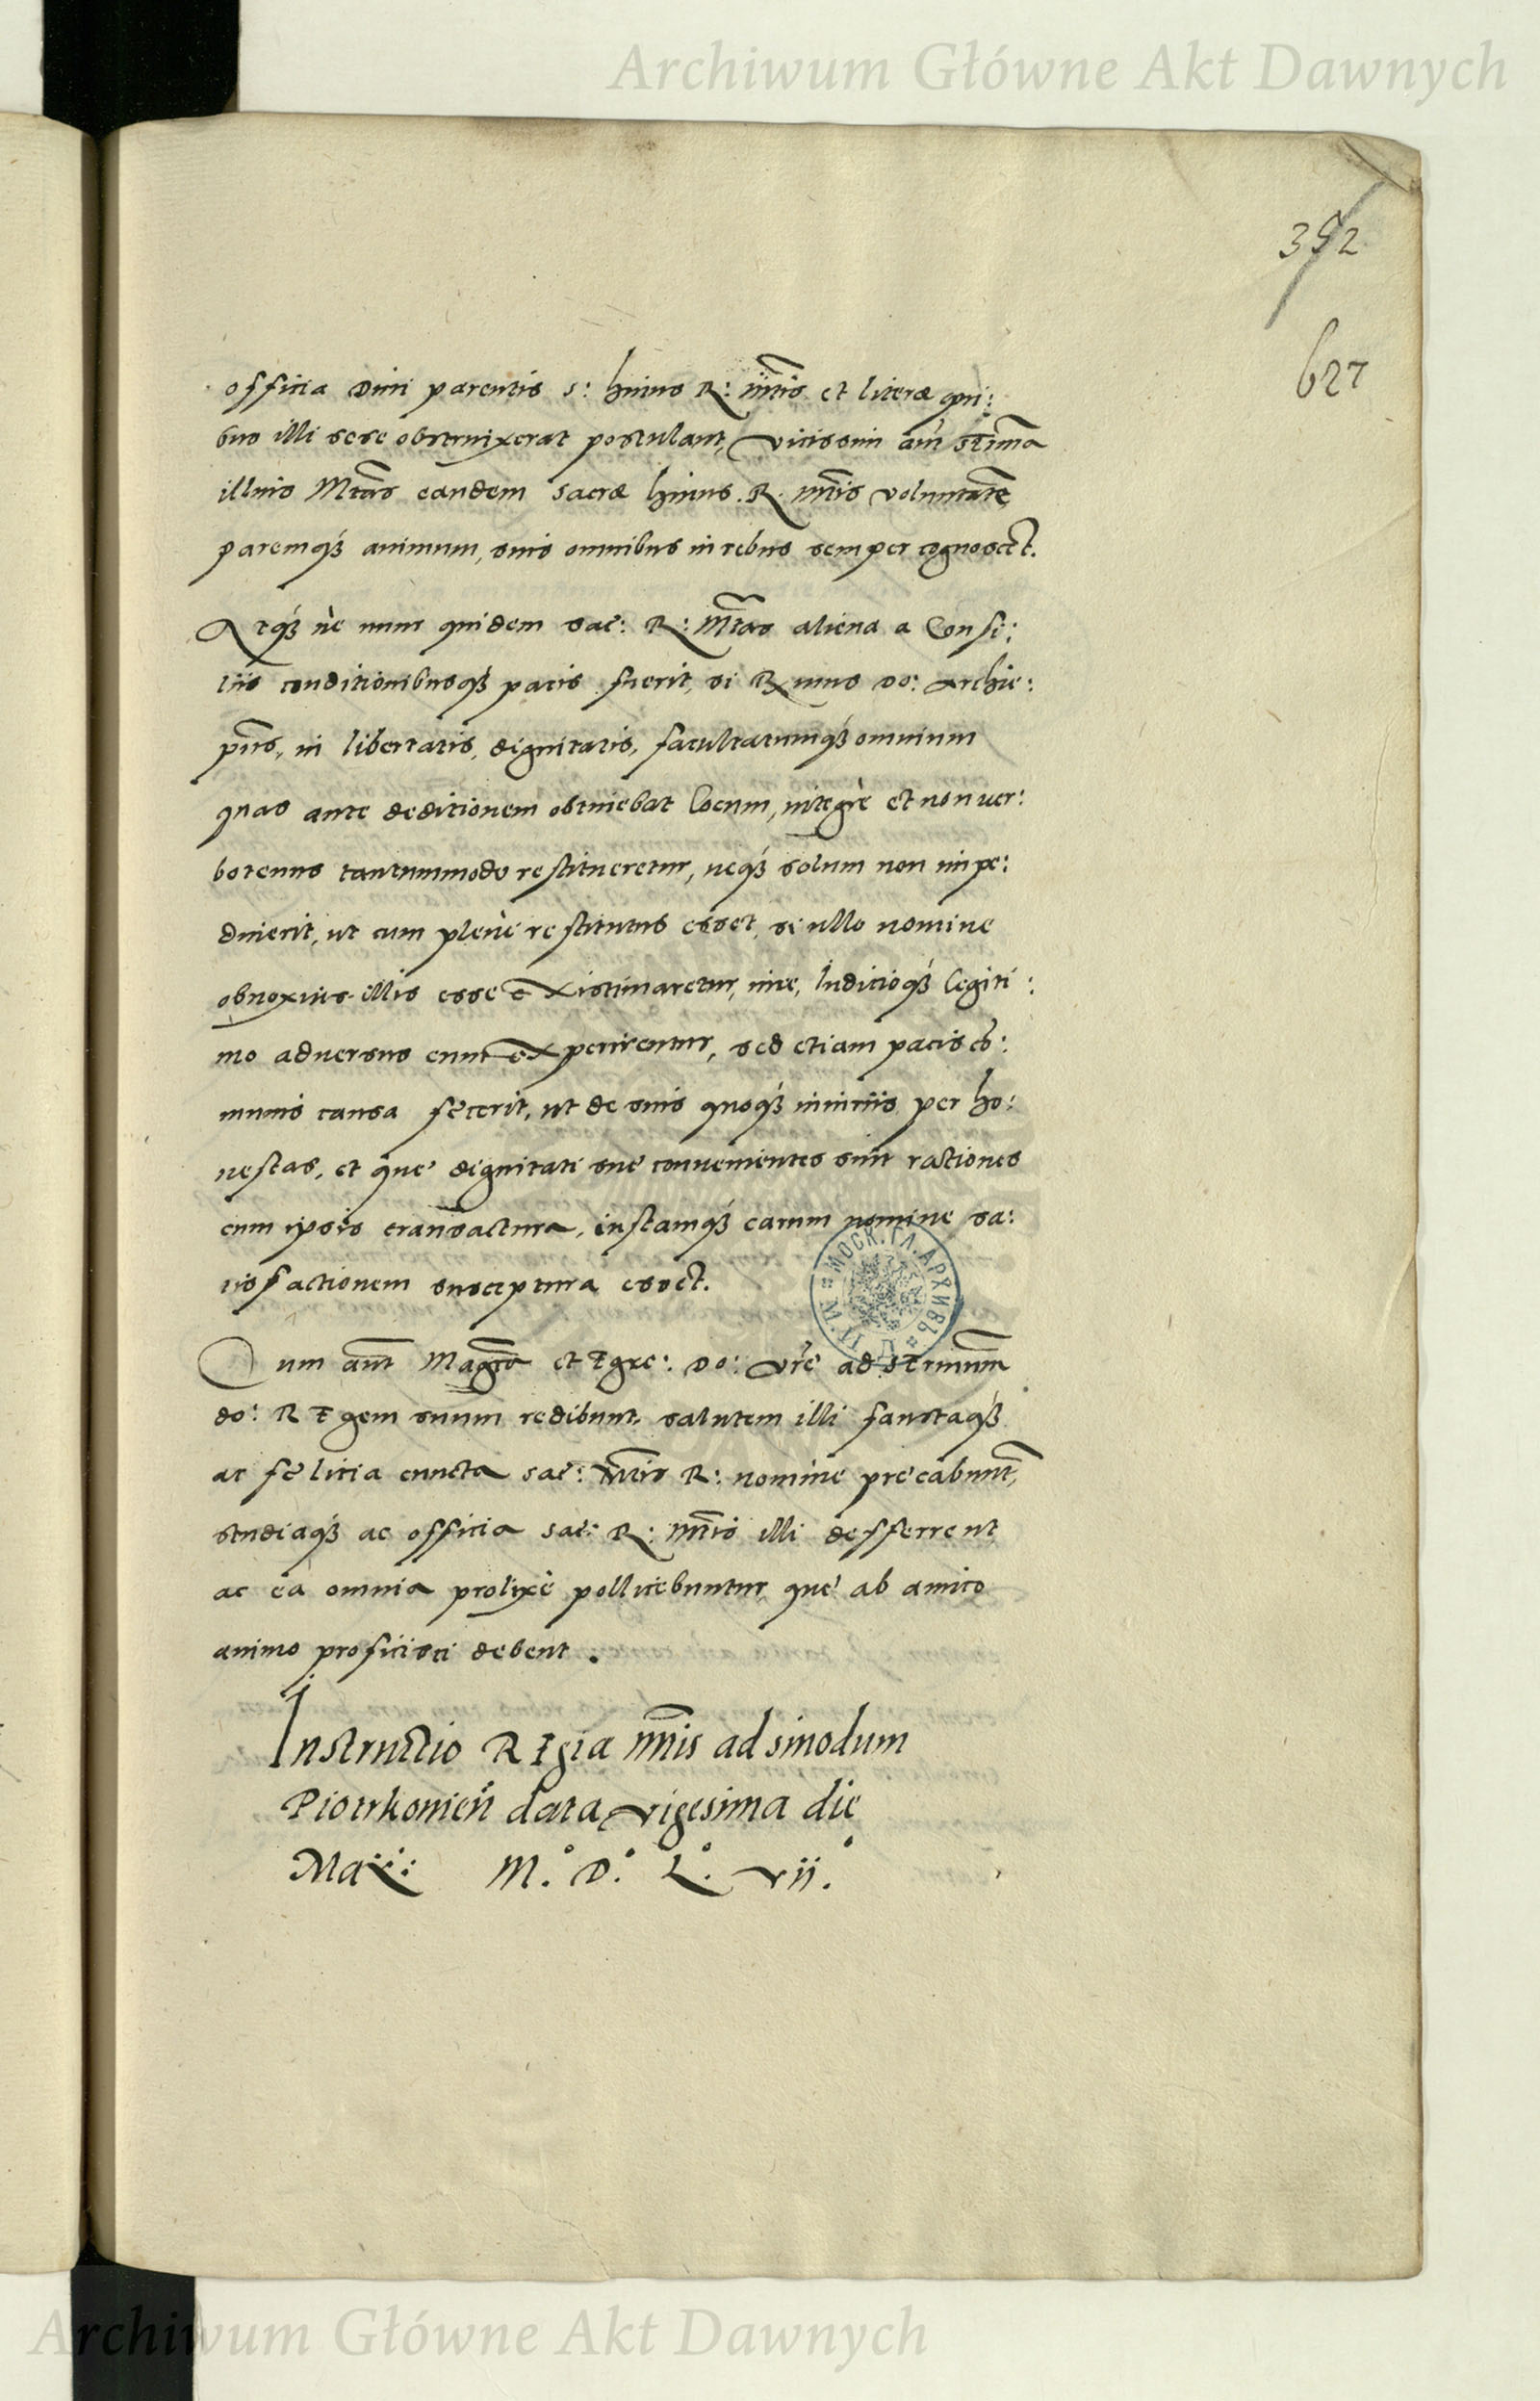 Archiwum Główne Akt Dawnych
352
627
officia Diui parentis S: huius R: Mtis et literæ qui:
bus illi sese obstruixerat postulant, vicissim aut Sermã
illius Mtas eandem sacræ huius R. Mtis voluntatẽ
paremq́ꝫ animum, suis omnibus in rebus semper cognoscet.
Atq́ꝫ ne nunc quidem sac: R: Mtas aliena a Consi:
liis conditionibusq́ꝫ pacis fuerit, si Rx̃mus Do: Archie:
pũs, in libertatis, dignitatis, facultatumq́ꝫ omnium
quas ante deditionem obtinebat locum, integrè et non uer:
botenus tantummodo restitueretur, neq́ꝫ solum non impe:
diuerit, ut cum plenè restitutus esset, si ullo nomine
obnoxius illis esse existimaretur, iure, Iudicioq́ꝫ legiti:
mo aduersus eum experirentur, sed etiam pacis cõ:
munis causa fecerit, ut de suis quoq́ꝫ iniuriis per ho:
nestas, et que dignitati sue conuenientes sint rationes
cum ipsis transactura, iustamq́ꝫ earum nomine sa:
tisfactionem susceptura esset.
Cum aũt Magcẽ et Egre: Do: Vrẽ ad Sermum
do: REgem suum redibunt, salutem illi faustaq́ꝫ
ac felicia cuncta sac: Mtis R: nomine precabunt,
studiaq́ꝫ ac officia sac: R: Mtis illi defferrent
ac ea omnia prolixè pollicebuntur, que ab amico
animo proficisci debent.
Instructio REgia Mtis ad sinodum
Piotrkovien̄ data vigesima die
Maij: M.° D.° L.° vii.°
МОСК. ГЛ. АРХИВЪ
Archiwum Główne Akt Dawnych